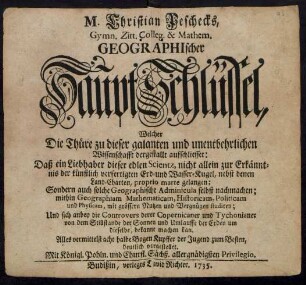 M. Christian Peschecks,
Gymn. Zitt. Colleg. & Mathem.
GEOGRAPHIscher
Haupt Schlüssel,
Welcher
Die Thüre zu dieser galanten und unentbehrlichen
Wissenschafft dergestallt auffschliesset:
Daß ein Liebhaber dieser edlen Scienz, nicht allein zur Erkännt-
nis der künstlich verfertigten Erd- und Wasser-Kugel, nebst denen
Land-Charten, proprio marte gelangen;
Sondern auch solche Geographische Adminicula selbst nachmachen;
mithin Geographiam Mathematicam, Historicam, Politicam
und Physicam, mit grossem Nutzen und Vergnügen studiren;
Und sich anbey die Controvers derer Copernicaner und Tychonianer
von dem Stillstande der Sonnen und Umlauffe der Erden um
dieselbe, bekannt machen kan.
Alles vermittelst acht halbe Bogen Kupffer der Jugend zum Besten,
deutlich vorgestellet.
Mit Königl. Pohln. und Churfl. Sächs. allergnädigsten Privilegio.
Budißin, verlegts David Richter, 1735.